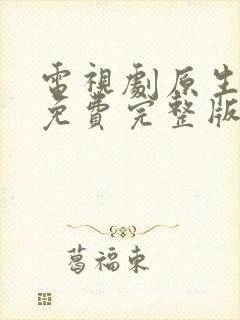 電視劇原生
免費完整版
葛福東